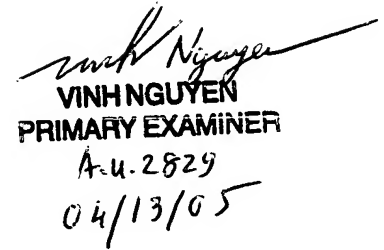 Vinh Nguyen
VINH NGUYEN
PRIMARY EXAMINER
A.U. 2829
04/13/05